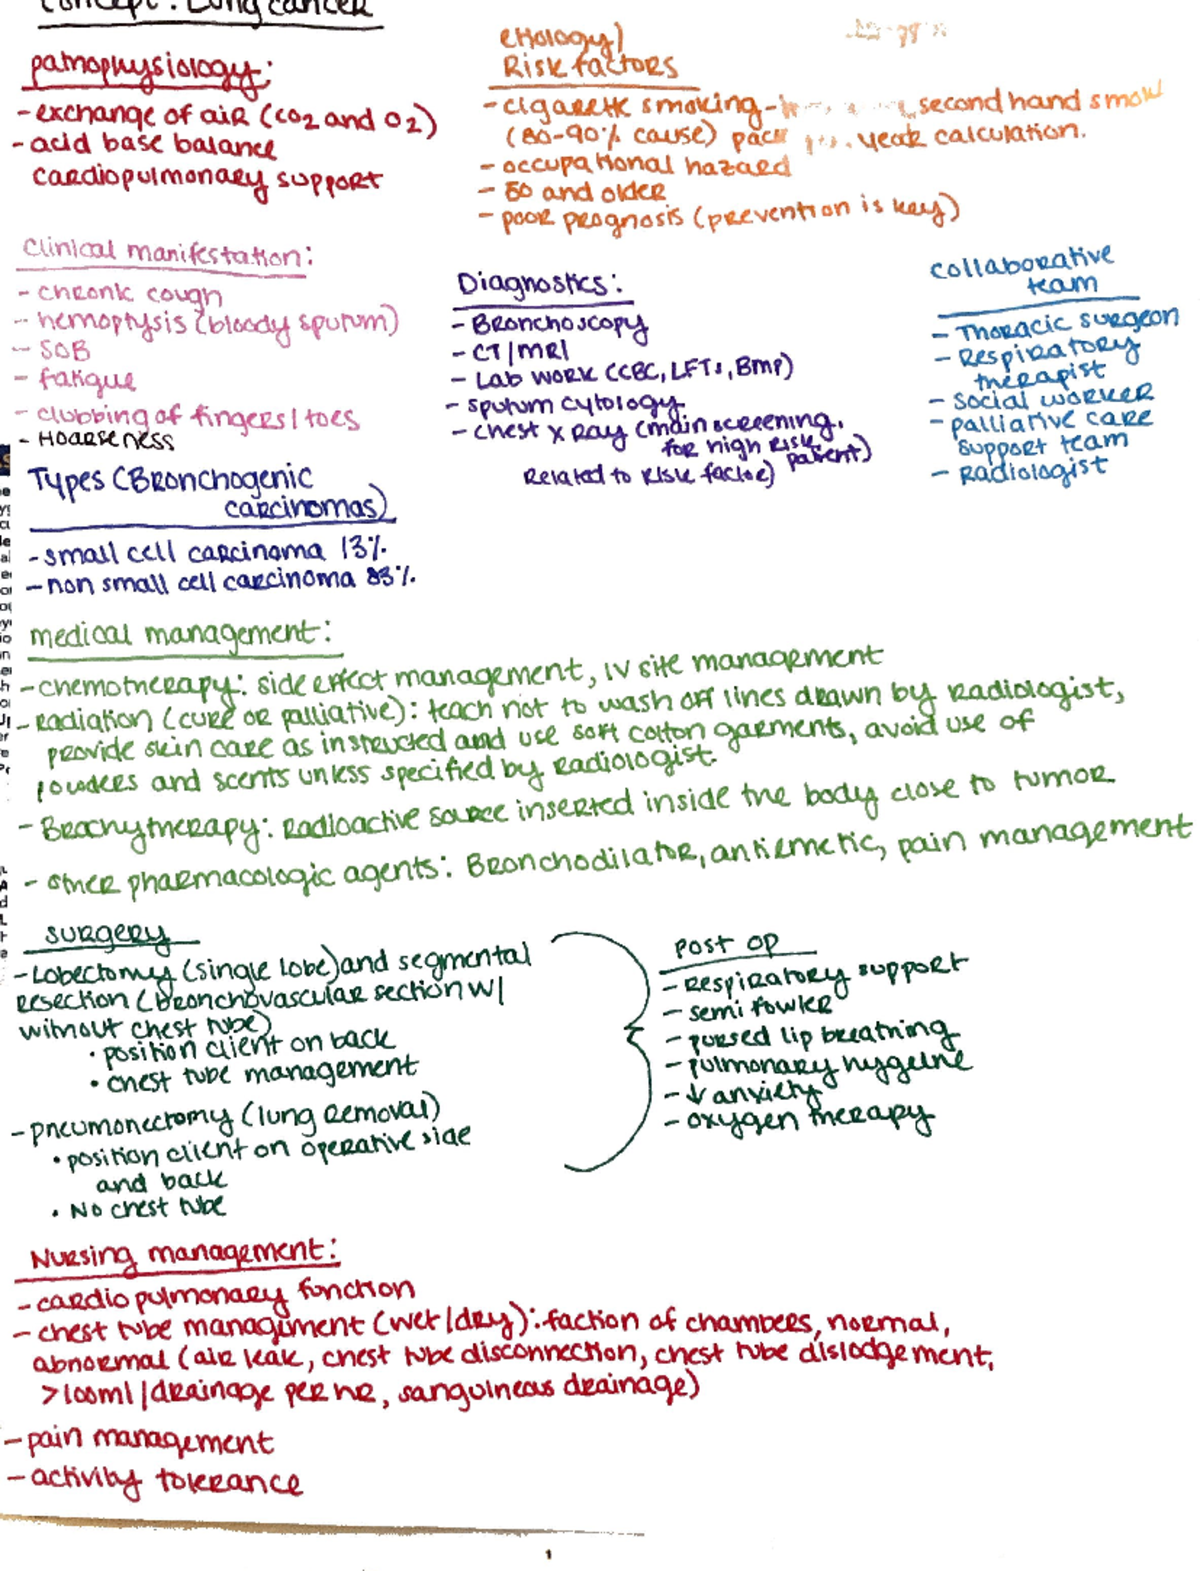 Concept: Lung cancer
pathophysiology:
- exchange of air (CO2 and O2)
- acid base balance
cardiopulmonary support
etiology)
Risk factors
- cigarette smoking - second hand smok
(80-90% cause) pack year calculation.
- occupational hazard
- 50 and older
- poor prognosis (prevention is key)
clinical manifestation:
- chronic cough
- hemoptysis (bloody sputum)
- SOB
- fatigue
- clubbing of fingers/toes
- Hoarseness
Diagnostics:
- Bronchoscopy
- CT/MRI
- Lab work (CBC, LFTs, Bmp)
- sputum cytology
- chest x ray (main screening,
for high risk patient)
Related to risk factor)
collaborative
team
- Thoracic surgeon
- Respiratory
therapist
- social worker
- palliative care
support team
- Radiologist
Types (Bronchogenic
carcinomas)
- small cell carcinoma 13%
- non small cell carcinoma 83%
medical management:
- chemotherapy: side effect management, IV site management
- radiation (cure or palliative): teach not to wash off lines drawn by radiologist,
provide skin care as instructed and use soft cotton garments, avoid use of
powders and scents unless specified by radiologist.
- Brachytherapy: radioactive source inserted inside the body close to tumor
- other pharmacologic agents: Bronchodilator, antiemetic, pain management
surgery
- Lobectomy (single lobe) and segmental
resection (bronchovascular section w/
without chest tube)
• position client on back
• chest tube management
- pneumonectomy (lung removal)
• position client on operative side
and back
• No chest tube
post op
- respiratory support
- semi fowler
- pursed lip breathing
- pulmonary hygeine
- ↓ anxiety
- oxygen therapy
Nursing management:
- cardiopulmonary function
- chest tube management (wet/dry): faction of chambers, normal,
abnormal (air leak, chest tube disconnection, chest tube dislodgement,
>100ml/drainage per hr, sanguineous drainage)
- pain management
- activity tolerance
1